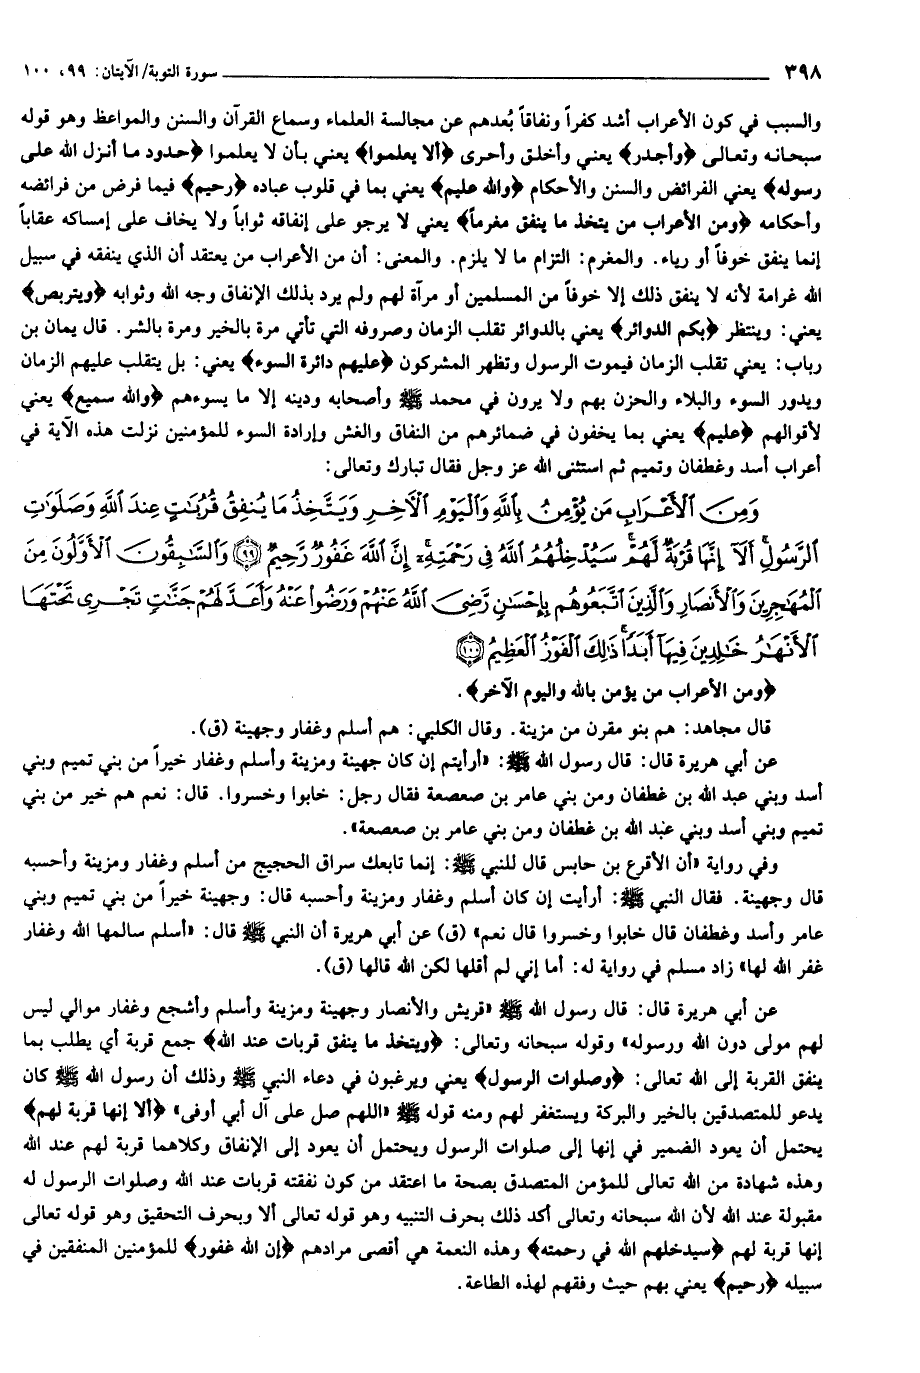 ٣٩٨ سورة التوبة/ الآيتان: ٩٩، ١٠٠
والسبب في كون الأعراب أشد كفراً ونفاقاً بُعدهم عن مجالسة العلماء وسماع القرآن والسنن والمواعظ وهو قوله
سبحانه وتعالى ﴿وأجدر﴾ يعني وأخلق وأحرى ﴿ألا يعلموا﴾ يعني بأن لا يعلموا ﴿حدود ما أنزل الله على
رسوله﴾ يعني الفرائض والسنن والأحكام ﴿والله عليم﴾ يعني بما في قلوب عباده ﴿رحيم﴾ فيما فرض من فرائضه
وأحكامه ﴿ومن الأعراب من يتخذ ما ينفق مغرماً﴾ يعني لا يرجو على إنفاقه ثواباً ولا يخاف على إمساكه عقاباً
إنما ينفق خوفاً أو رياء. والمغرم: التزام ما لا يلزم. والمعنى: أن من الأعراب من يعتقد أن الذي ينفقه في سبيل
الله غرامة لأنه لا ينفق ذلك إلا خوفاً من المسلمين أو مرآة لهم ولم يرد بذلك الإنفاق وجه الله وثوابه ﴿ويتربص﴾
يعني: وينتظر ﴿بكم الدوائر﴾ يعني بالدوائر تقلب الزمان وصروفه التي تأتي مرة بالخير ومرة بالشر. قال يمان بن
رباب: يعني تقلب الزمان فيموت الرسول وتظهر المشركون ﴿عليهم دائرة السوء﴾ يعني: بل يتقلب عليهم الزمان
ويدور السوء والبلاء والحزن بهم ولا يرون في محمد ﷺ وأصحابه ودينه إلا ما يسوءهم ﴿والله سميع﴾ يعني
لأقوالهم ﴿عليم﴾ يعني بما يخفون في ضمائرهم من النفاق والغش وإرادة السوء للمؤمنين نزلت هذه الآية في
أعراب أسد وغطفان وتميم ثم استثنى الله عز وجل فقال تبارك وتعالى:
وَمِنَ ٱلْأَعْرَابِ مَن يُؤْمِنُ بِٱللَّهِ وَٱلْيَوْمِ ٱلْآخِرِ وَيَتَّخِذُ مَا يُنفِقُ قُرُبَٰتٍ عِندَ ٱللَّهِ وَصَلَوَٰتِ
ٱلرَّسُولِ ۚ أَلَآ إِنَّهَا قُرْبَةٌ لَّهُمْ ۚ سَيُدْخِلُهُمُ ٱللَّهُ فِى رَحْمَتِهِۦٓ ۗ إِنَّ ٱللَّهَ غَفُورٌ رَّحِيمٌ ﴿٩٩﴾ وَٱلسَّٰبِقُونَ ٱلْأَوَّلُونَ مِنَ
ٱلْمُهَٰجِرِينَ وَٱلْأَنصَارِ وَٱلَّذِينَ ٱتَّبَعُوهُم بِإِحْسَٰنٍ رَّضِىَ ٱللَّهُ عَنْهُمْ وَرَضُوا۟ عَنْهُ وَأَعَدَّ لَهُمْ جَنَّٰتٍ تَجْرِى تَحْتَهَا
ٱلْأَنْهَٰرُ خَٰلِدِينَ فِيهَآ أَبَدًا ۚ ذَٰلِكَ ٱلْفَوْزُ ٱلْعَظِيمُ ﴿١٠٠﴾
﴿ومن الأعراب من يؤمن بالله واليوم الآخر﴾.
قال مجاهد: هم بنو مقرن من مزينة. وقال الكلبي: هم أسلم وغفار وجهينة (ق).
عن أبي هريرة قال: قال رسول الله ﷺ: «أرأيتم إن كان جهينة ومزينة وأسلم وغفار خيراً من بني تميم وبني
أسد وبني عبد الله بن غطفان ومن بني عامر بن صعصعة فقال رجل: خابوا وخسروا. قال: نعم هم خير من بني
تميم وبني أسد وبني عبد الله بن غطفان ومن بني عامر بن صعصعة».
وفي رواية «أن الأقرع بن حابس قال للنبي ﷺ: إنما تابعك سراق الحجيج من أسلم وغفار ومزينة وأحسبه
قال وجهينة. فقال النبي ﷺ: أرأيت إن كان أسلم وغفار ومزينة وأحسبه قال: وجهينة خيراً من بني تميم وبني
عامر وأسد وغطفان قال خابوا وخسروا قال نعم» (ق) عن أبي هريرة أن النبي ﷺ قال: «أسلم سالمها الله وغفار
غفر الله لها» زاد مسلم في رواية له: أما إني لم أقلها لكن الله قالها (ق).
عن أبي هريرة قال: قال رسول الله ﷺ «قريش والأنصار وجهينة ومزينة وأسلم وأشجع وغفار موالي ليس
لهم مولى دون الله ورسوله» وقوله سبحانه وتعالى: ﴿ويتخذ ما ينفق قربات عند الله﴾ جمع قربة أي يطلب بما
ينفق القربة إلى الله تعالى: ﴿وصلوات الرسول﴾ يعني ويرغبون في دعاء النبي ﷺ وذلك أن رسول الله ﷺ كان
يدعو للمتصدقين بالخير والبركة ويستغفر لهم ومنه قوله ﷺ «اللهم صل على آل أبي أوفى» ﴿ألا إنها قربة لهم﴾
يحتمل أن يعود الضمير في إنها إلى صلوات الرسول ويحتمل أن يعود إلى الإنفاق وكلاهما قربة لهم عند الله
وهذه شهادة من الله تعالى للمؤمن المتصدق بصحة ما اعتقد من كون نفقته قربات عند الله وصلوات الرسول له
مقبولة عند الله لأن الله سبحانه وتعالى أكد ذلك بحرف التنبيه وهو قوله تعالى ألا وبحرف التحقيق وهو قوله تعالى
إنها قربة لهم ﴿سيدخلهم الله في رحمته﴾ وهذه النعمة هي أقصى مرادهم ﴿إن الله غفور﴾ للمؤمنين المنفقين في
سبيله ﴿رحيم﴾ يعني بهم حيث وفقهم لهذه الطاعة.